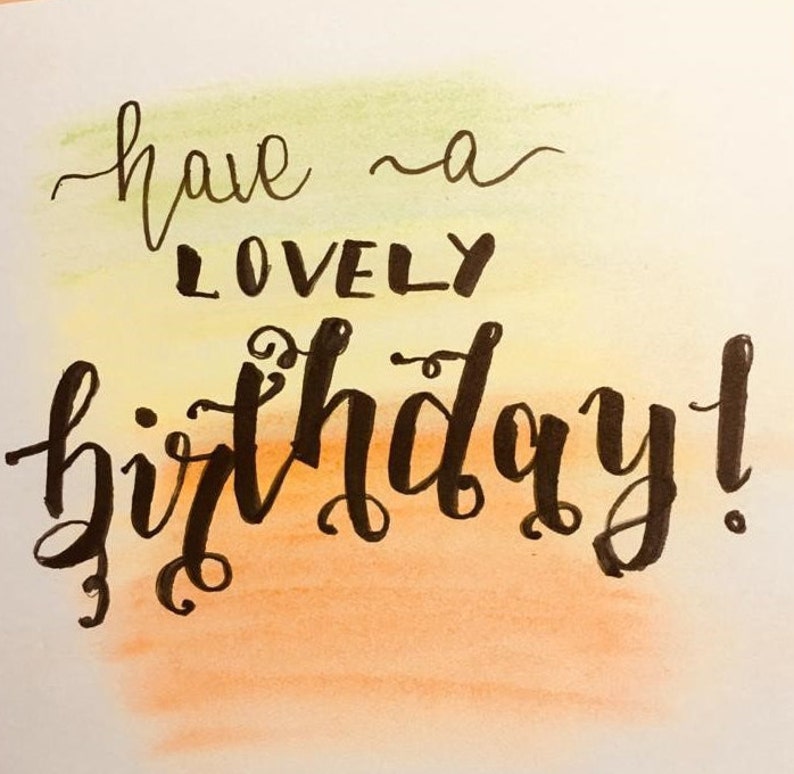 have a
LOVELY
birthday!